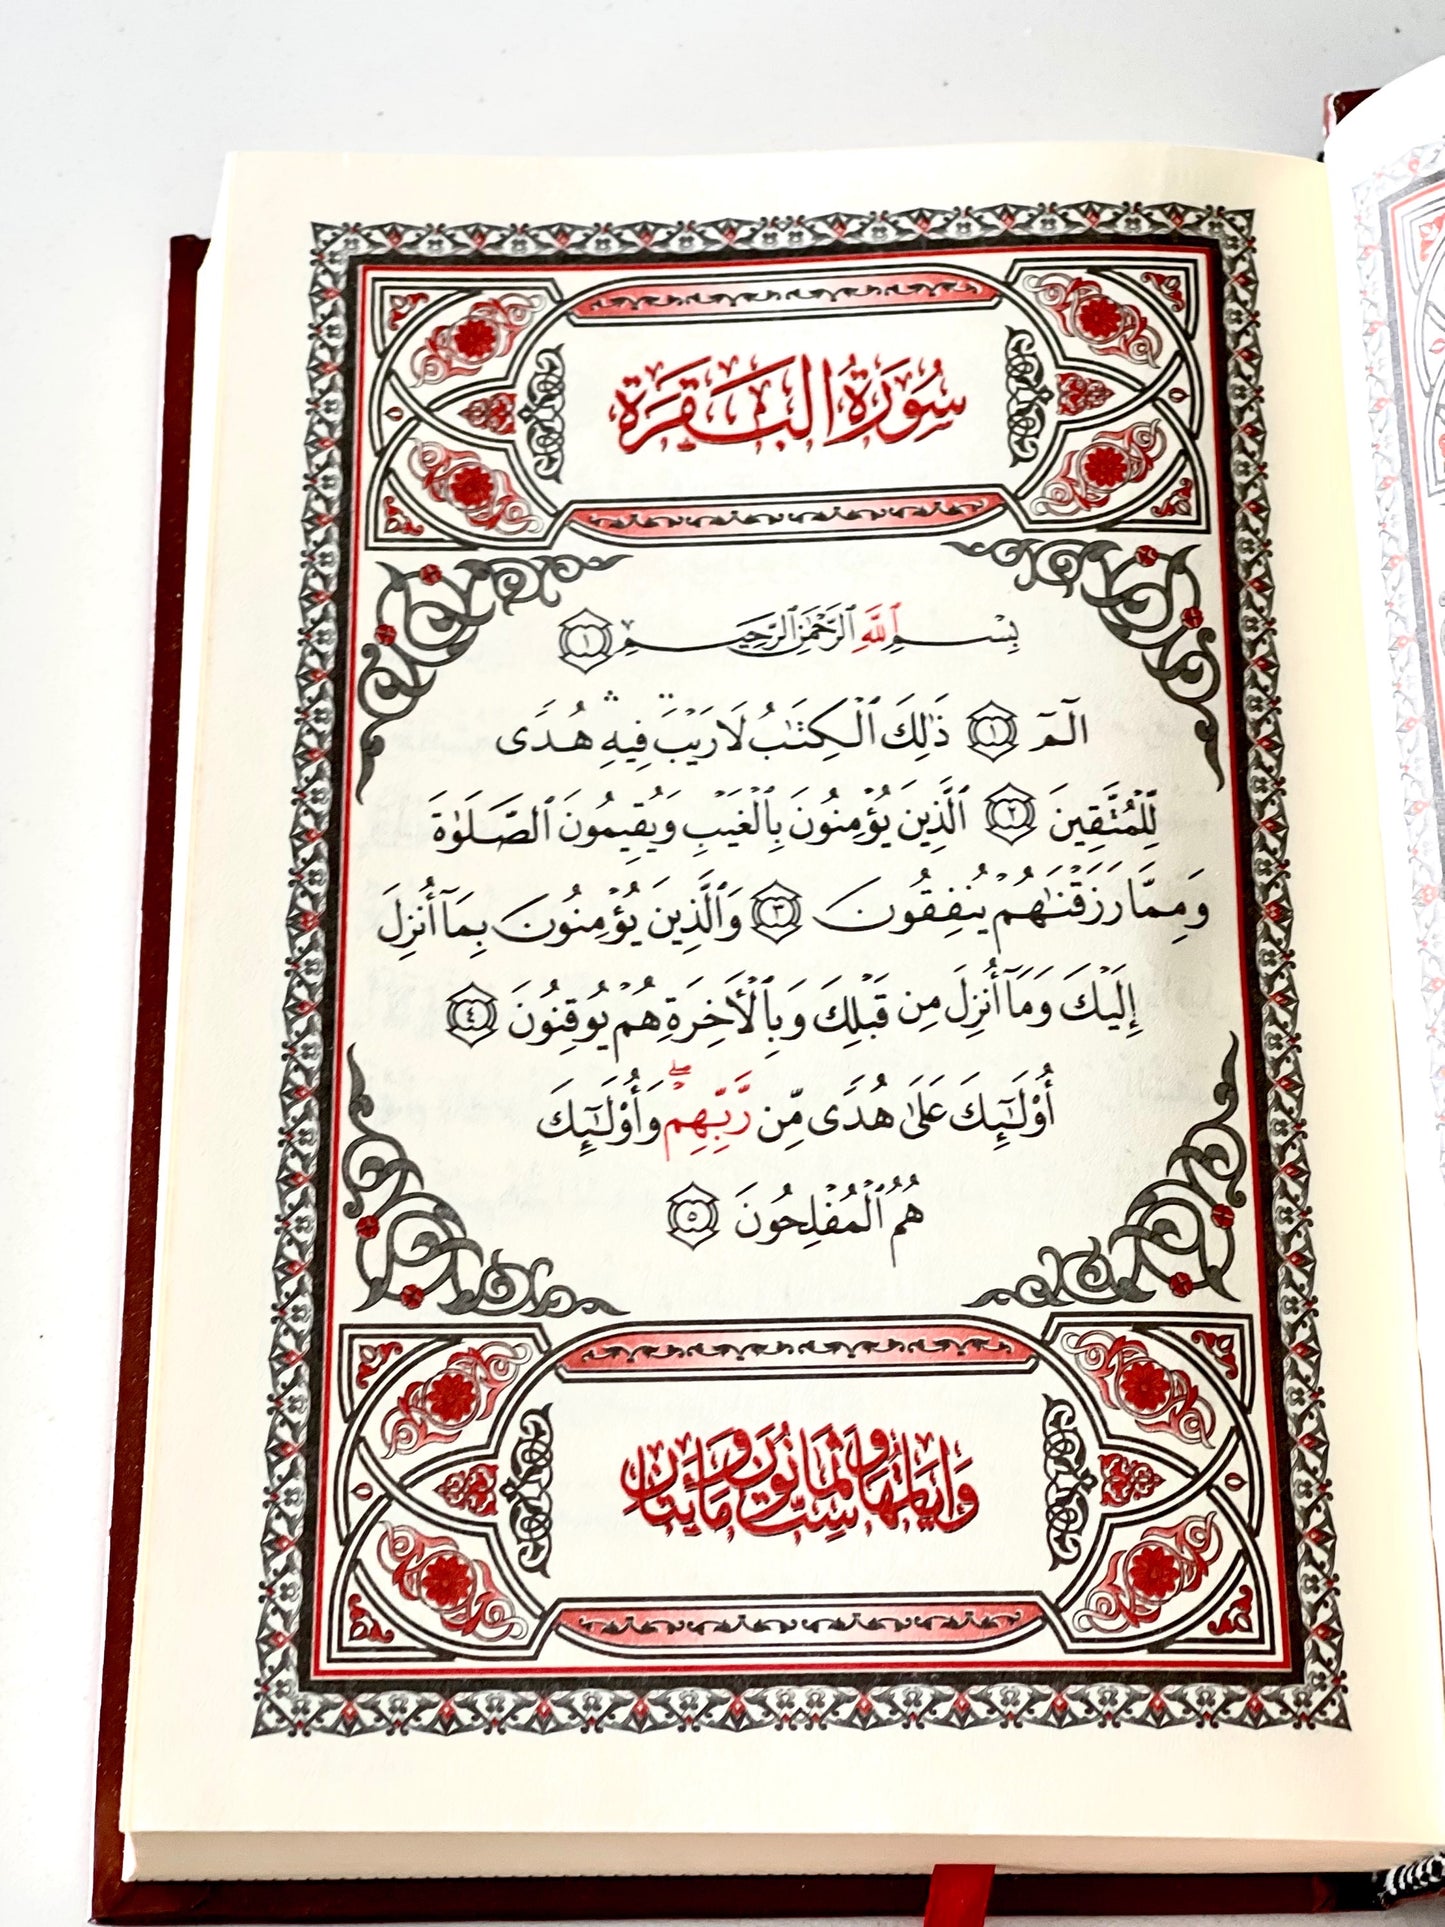 سُورَةُ الْبَقَرَةِ
بِسْمِ ٱللَّهِ ٱلرَّحْمَٰنِ ٱلرَّحِيمِ ١
الٓمٓ ١ ذَٰلِكَ ٱلْكِتَٰبُ لَا رَيْبَ ۛ فِيهِ ۛ هُدًى
لِّلْمُتَّقِينَ ٢ ٱلَّذِينَ يُؤْمِنُونَ بِٱلْغَيْبِ وَيُقِيمُونَ ٱلصَّلَوٰةَ
وَمِمَّا رَزَقْنَٰهُمْ يُنفِقُونَ ٣ وَٱلَّذِينَ يُؤْمِنُونَ بِمَآ أُنزِلَ
إِلَيْكَ وَمَآ أُنزِلَ مِن قَبْلِكَ وَبِٱلْأَخِرَةِ هُمْ يُوقِنُونَ ٤
أُو۟لَٰٓئِكَ عَلَىٰ هُدًى مِّن رَّبِّهِمْ ۖ وَأُو۟لَٰٓئِكَ
هُمُ ٱلْمُفْلِحُونَ ٥
وَآيَاتُهَا سِتٌّ وَثَمَانُونَ وَمِائَتَانِ